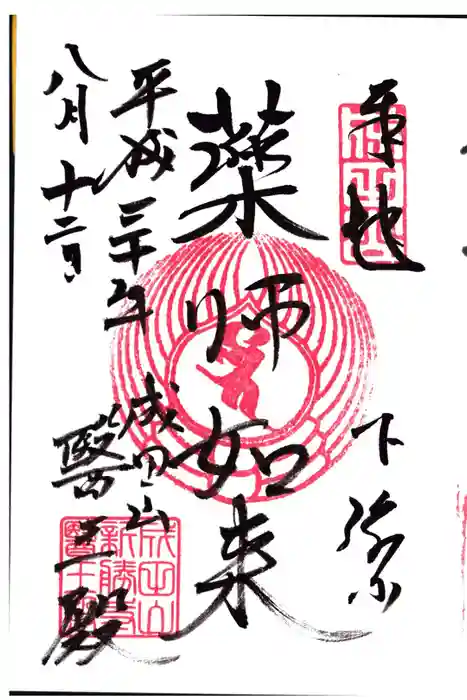 奉拝
成田山
下総
薬師如来
成田山
醫王殿
平成三十年
八月十二日
成田山
新勝寺
醫王殿